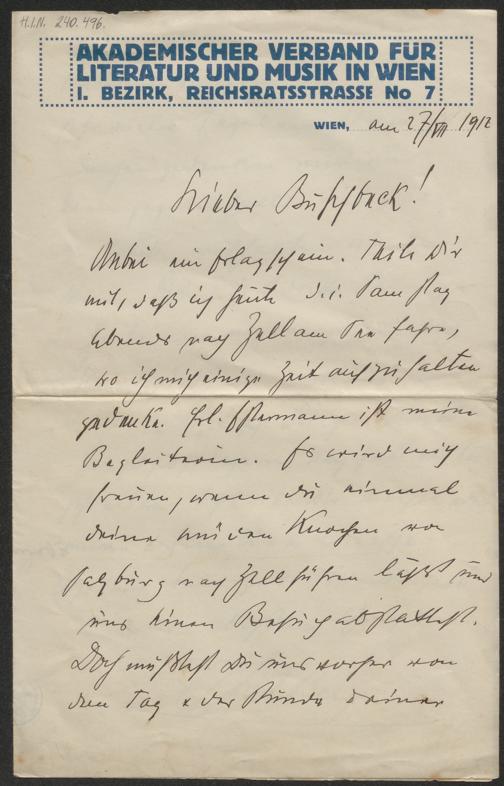 H.I.N. 240.496.
AKADEMISCHER VERBAND FÜR
LITERATUR UND MUSIK IN WIEN
I. BEZIRK, REICHSRATSSTRASSE No 7
WIEN, am 27/VII 1912
Lieber Buschbeck!
Anbei ein Erlagschein. Theile Dir
mit, daß ich heute d.i. Samstag
Abends nach Zell am See fahre,
wo ich mich einige Zeit aufzuhalten
gedenke. Frl. ist meine
Begleiterin. Es wird mich
freuen, wenn du einmal
deine müden Knochen von
Salzburg nach Zell führen läßt und
uns einen Besuch abstattest.
Doch müßtest Du uns vorher von
dem Tag & der Stunde deiner